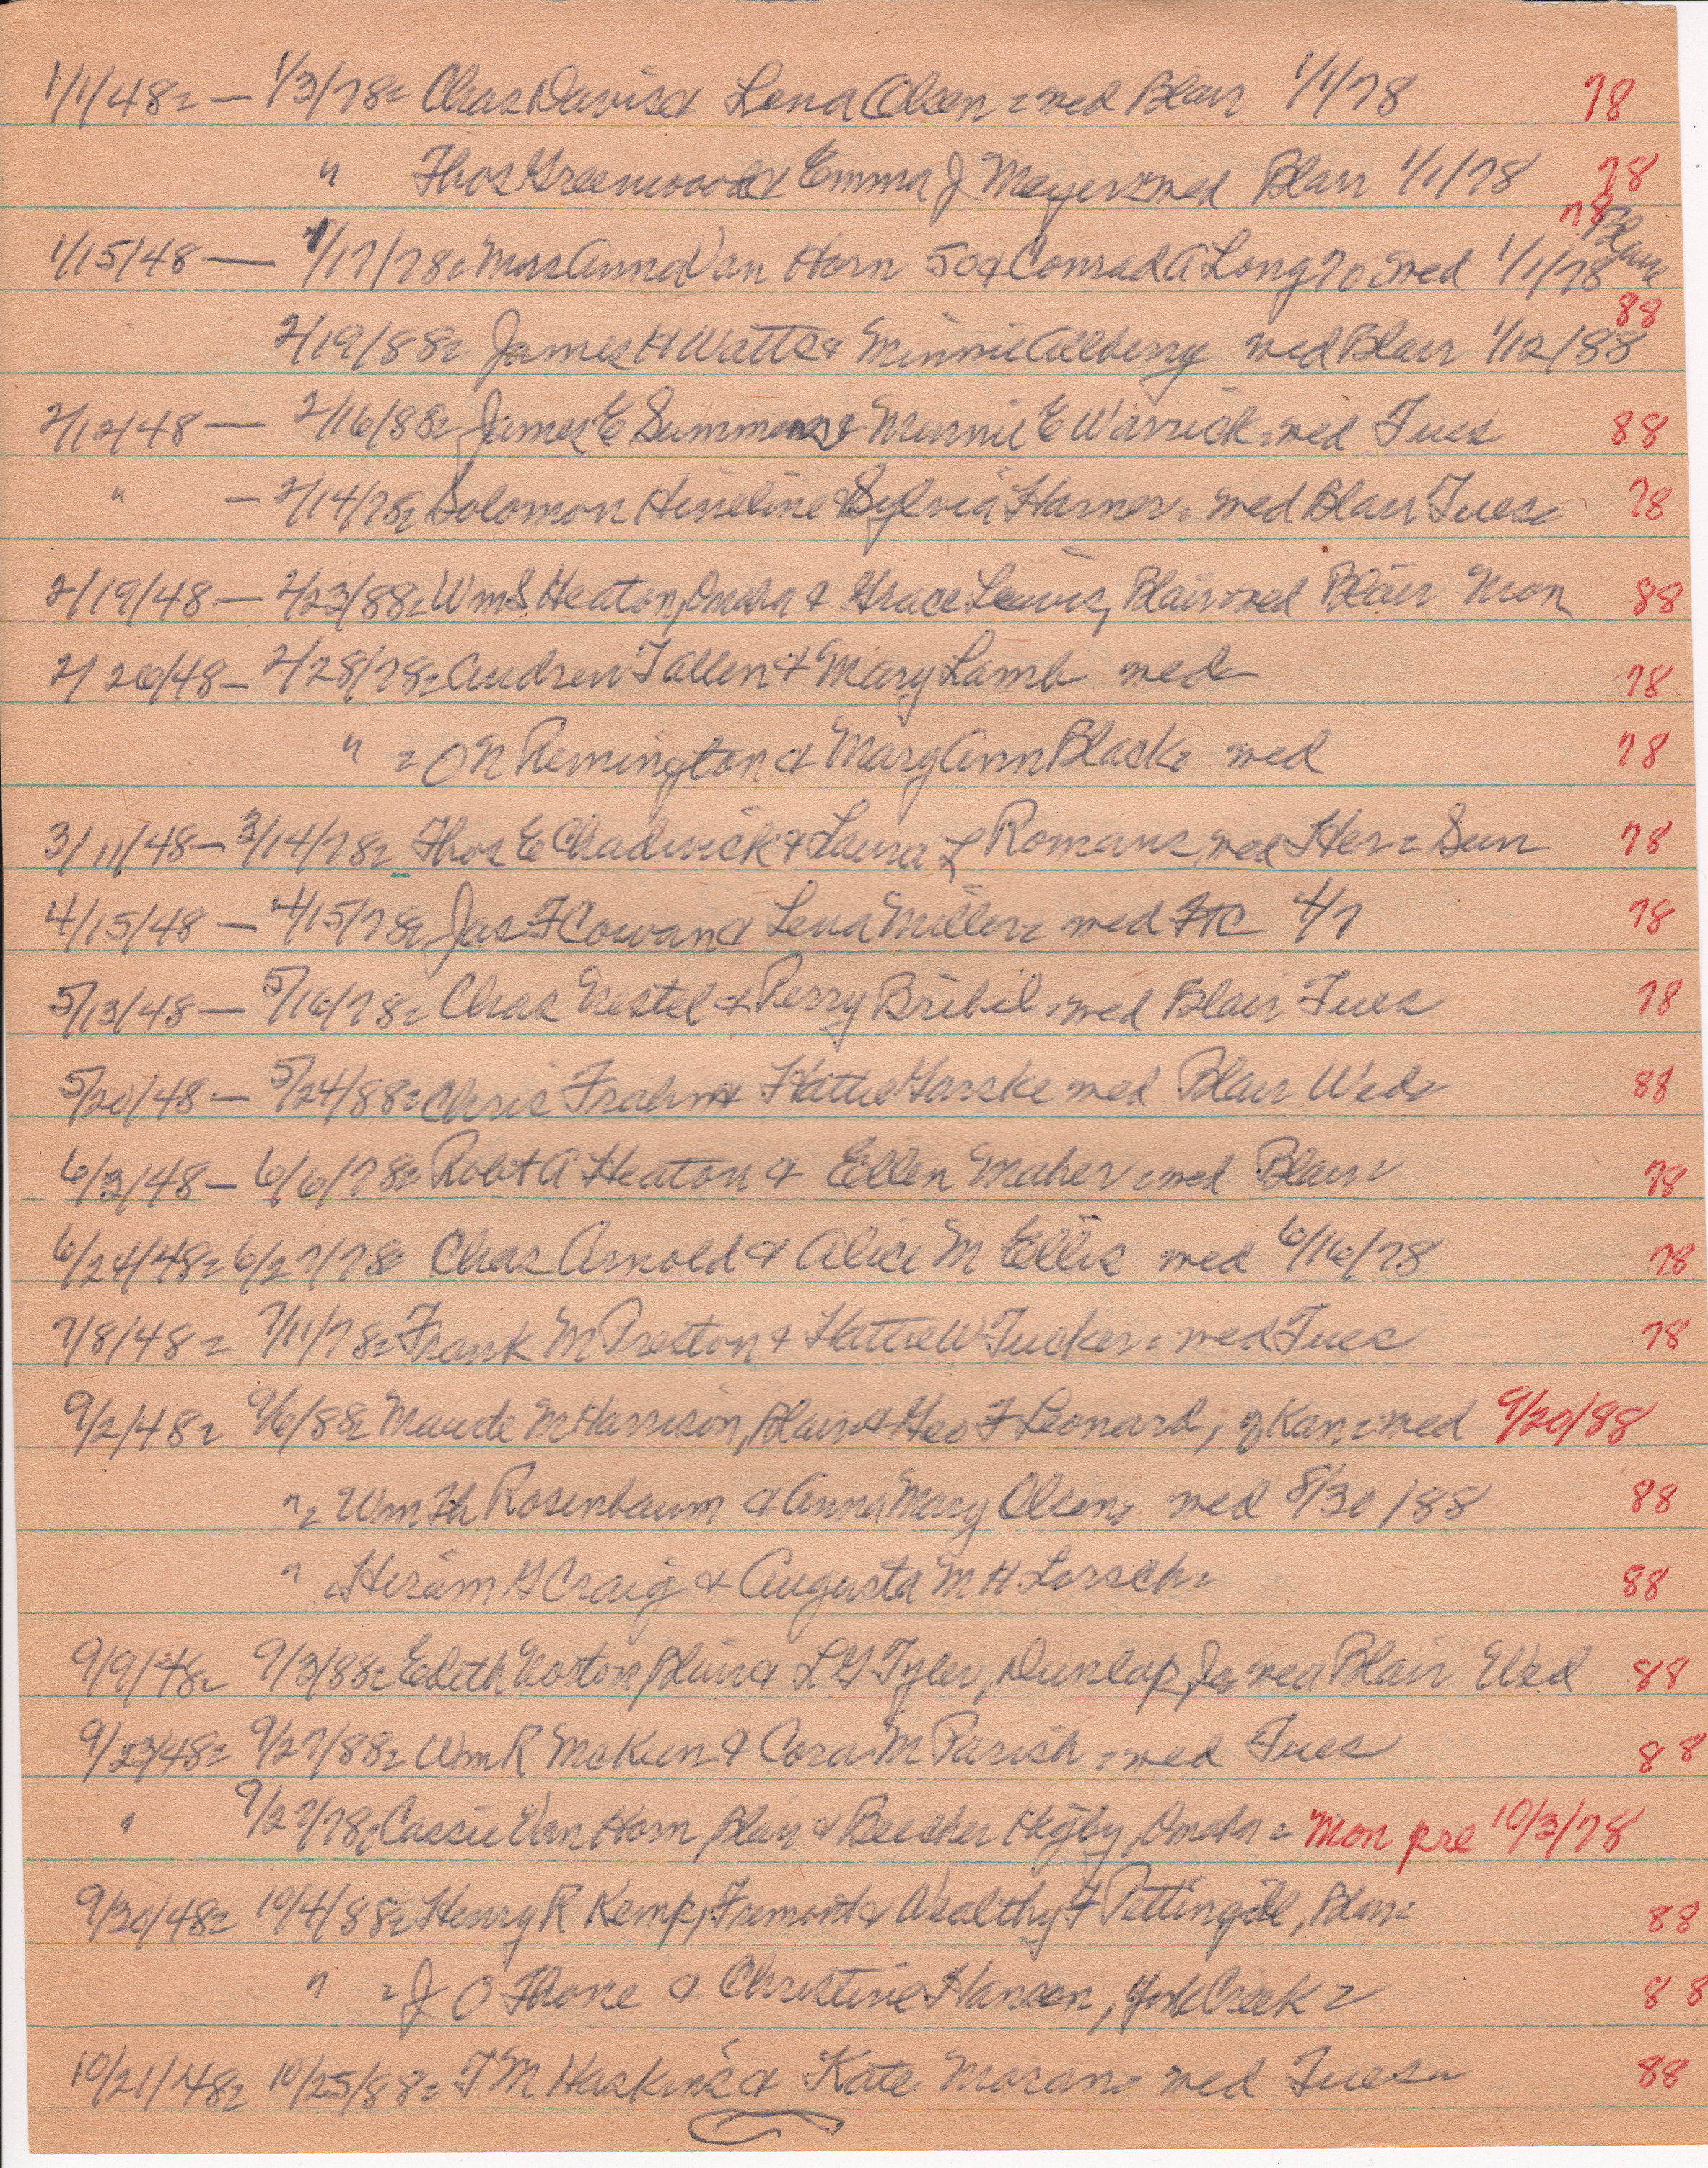 1/1/48= — 1/3/78= Chas Davis & Lena Olsen = wed Blair 1/1/78 78
" Thos Greenwood & Emma J Meyers = wed Blair 1/1/78 78
78 Blair
1/15/48 — 1/17/78= Mrs Anna Van Horn 50 & Conrad A Long 70 = wed 1/1/78
88
2/19/88= James H Watts & Minnie Allberry wed Blair 1/12/88
2/12/48 — 2/16/88= James E Summers & Minnie E Warrick = wed Tues 88
" — 2/14/78= Solomon Hineline & Sylvia Harner = wed Blair Tues = 78
2/19/48 — 2/23/88= Wm S Heaton, Omaha & Grace Lewis, Blair = wed Blair Mon 88
2/26/48 — 2/28/78= Andrew Tallen & Mary Lamb wed = 78
" = O N Remington & Mary Ann Black = wed 78
3/11/48 — 3/14/78= Thos E Chadwick & Laura L Romans, wed Her = Sun 78
4/15/48 — 4/15/78= Jas F Cowan & Lena Miller = wed FtC 4/7 78
5/13/48 — 5/16/78= Chas Nestel & Perry Bribil = wed Blair Tues 78
5/20/48 — 5/24/88= Chris Frahm & Hattie Garske wed Blair Wed = 88
6/3/48 — 6/6/78= Robt A Heaton & Ellen Maher = wed Blair = 78
6/24/48= 6/27/78= Chas Arnold & Alice M Ellis wed 6/16/78 78
7/8/48= 7/11/78= Frank M Preston & Hattie W Tucker = wed Tues 78
9/2/48= 9/6/88= Maude M Harrison, Blair & Geo F Leonard, of Kan = wed 9/20/88
" = Wm Th Rosenbaum & Anna Mary Olsen = wed 8/30/88 88
" = Hiram G Craig & Augusta M H Lorsch = 88
9/9/48= 9/3/88= Edith Norton, Blair & L G Tyler, Dunlap, Ia wed Blair Wed 88
9/23/48= 9/27/88= Wm R McKeen & Cora M Parish = wed Tues 88
" 9/27/78= Cassie Van Horn, Blair & Beecher Higby, Omaha = Mon pre 10/3/78
9/30/48= 10/4/88= Henry R Kemp, Fremont & Wealthy F Pettingill, Blair = 88
" = J O Thone & Christine Hansen, York Creek = 88
10/21/48= 10/25/88= T M Haskins & Kate Moran = wed Tues = 88